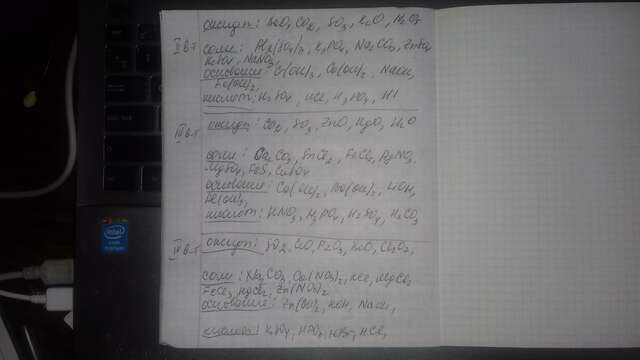 оксиды: BaO, CO2, SO3, K2O, N2O3
II в.
соли: Al2(SO4)3, K3PO4, Na2CO3, ZnSO4
K2SO4, NaNO3
основания: Cr(OH)3, Ca(OH)2, NaOH,
Fe(OH)2,
кислоты: H2SO4, HCl, H3PO4, HI
III в.
оксиды: CO2, SO2, ZnO, HgO, H2O
соли: CO3, FeCl3, AgNO3
MgSO4, FeS, CuSO4
основания: Ca(OH)2, Ba(OH)2, LiOH,
кислоты: HNO3, H3PO4, H2SO4, H2CO3
IV в.
оксиды: SO2, P2O3, K2O,
соли: Na2CO3, Ca(NO3)2, KCl, MgCl2
FeCl3, HgCl2, Zn(NO3)2
основания: Zn(OH)2, KOH, NaOH,
кислоты: HPO3, HBr, HCl,
intel